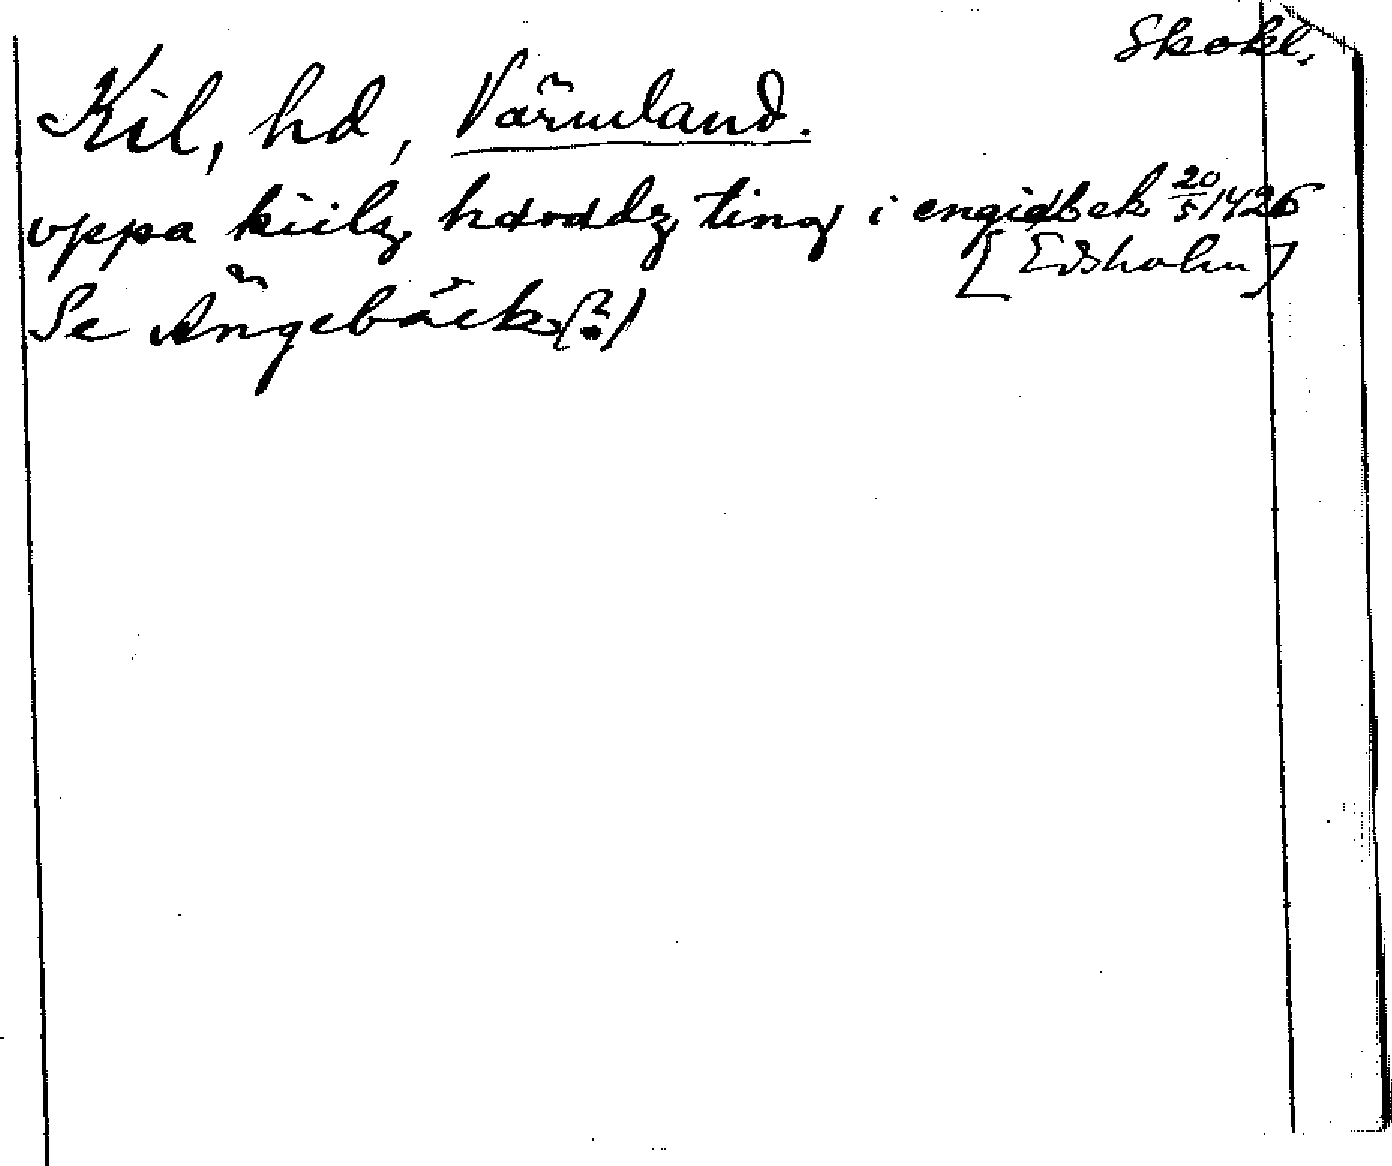 Skokl.
Kil, hd, Värmland.
uppa kiilz hdrddz ting i engidbek 20/5 1426
[Edsholm]
Se Ängebäck(?)